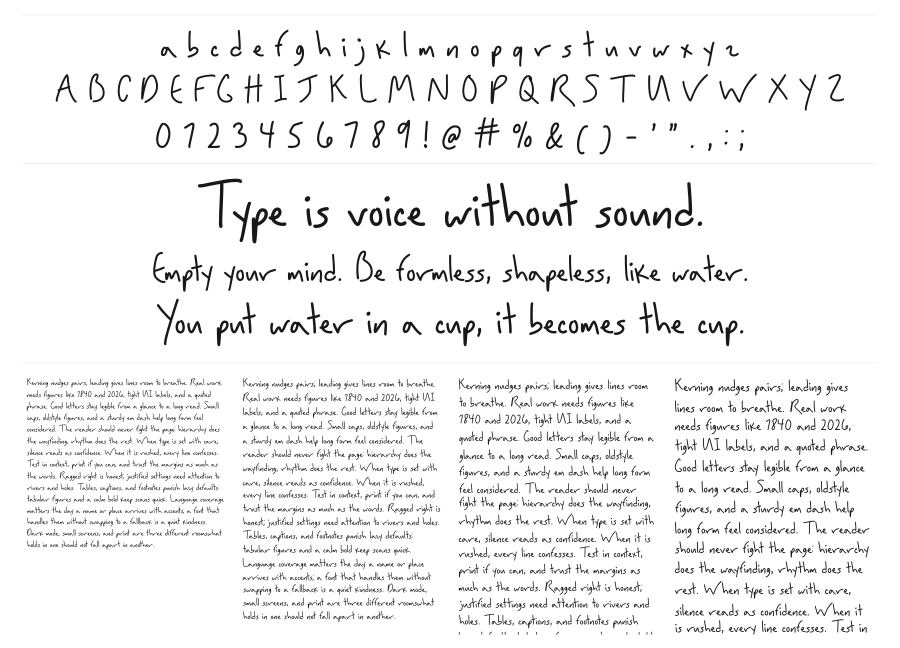 a b c d e f g h i j k l m n o p q r s t u v w x y z
A B C D E F G H I J K L M N O P Q R S T U V W X Y Z
0 1 2 3 4 5 6 7 8 9 ! @ # % & ( ) - ' " . , : ;
Type is voice without sound.
Empty your mind. Be formless, shapeless, like water.
You put water in a cup, it becomes the cup.
Kerning nudges pairs; leading gives lines room to breathe. Real work
needs figures like 1840 and 2026, tight UI labels, and a quoted
phrase. Good letters stay legible from a glance to a long read. Small
caps, oldstyle figures, and a sturdy em dash help long form feel
considered. The reader should never fight the page; hierarchy does
the wayfinding, rhythm does the rest. When type is set with care,
silence reads as confidence. When it is rushed, every line confesses.
Test in context, print if you can, and trust the margins as much as
the words. Ragged right is honest; justified settings need attention to
rivers and holes. Tables, captions, and footnotes punish lazy defaults;
tabular figures and a calm bold keep scans quick. Language coverage
matters the day a name or place arrives with accents; a font that
handles them without swapping to a fallback is a quiet kindness.
Dark mode, small screens, and print are three different rooms:what
holds in one should not fall apart in another.
Kerning nudges pairs; leading gives lines room to breathe.
Real work needs figures like 1840 and 2026, tight UI
labels, and a quoted phrase. Good letters stay legible from
a glance to a long read. Small caps, oldstyle figures, and
a sturdy em dash help long form feel considered. The
reader should never fight the page; hierarchy does the
wayfinding, rhythm does the rest. When type is set with
care, silence reads as confidence. When it is rushed,
every line confesses. Test in context, print if you can, and
trust the margins as much as the words. Ragged right is
honest; justified settings need attention to rivers and holes.
Tables, captions, and footnotes punish lazy defaults;
tabular figures and a calm bold keep scans quick.
Language coverage matters the day a name or place
arrives with accents; a font that handles them without
swapping to a fallback is a quiet kindness. Dark mode,
small screens, and print are three different rooms:what
holds in one should not fall apart in another.
Kerning nudges pairs; leading gives lines room
to breathe. Real work needs figures like
1840 and 2026, tight UI labels, and a
quoted phrase. Good letters stay legible from a
glance to a long read. Small caps, oldstyle
figures, and a sturdy em dash help long form
feel considered. The reader should never
fight the page; hierarchy does the wayfinding,
rhythm does the rest. When type is set with
care, silence reads as confidence. When it is
rushed, every line confesses. Test in context,
print if you can, and trust the margins as
much as the words. Ragged right is honest;
justified settings need attention to rivers and
holes. Tables, captions, and footnotes punish
Kerning nudges pairs; leading gives
lines room to breathe. Real work
needs figures like 1840 and 2026,
tight UI labels, and a quoted phrase.
Good letters stay legible from a glance
to a long read. Small caps, oldstyle
figures, and a sturdy em dash help
long form feel considered. The reader
should never fight the page; hierarchy
does the wayfinding, rhythm does the
rest. When type is set with care,
silence reads as confidence. When it
is rushed, every line confesses. Test in